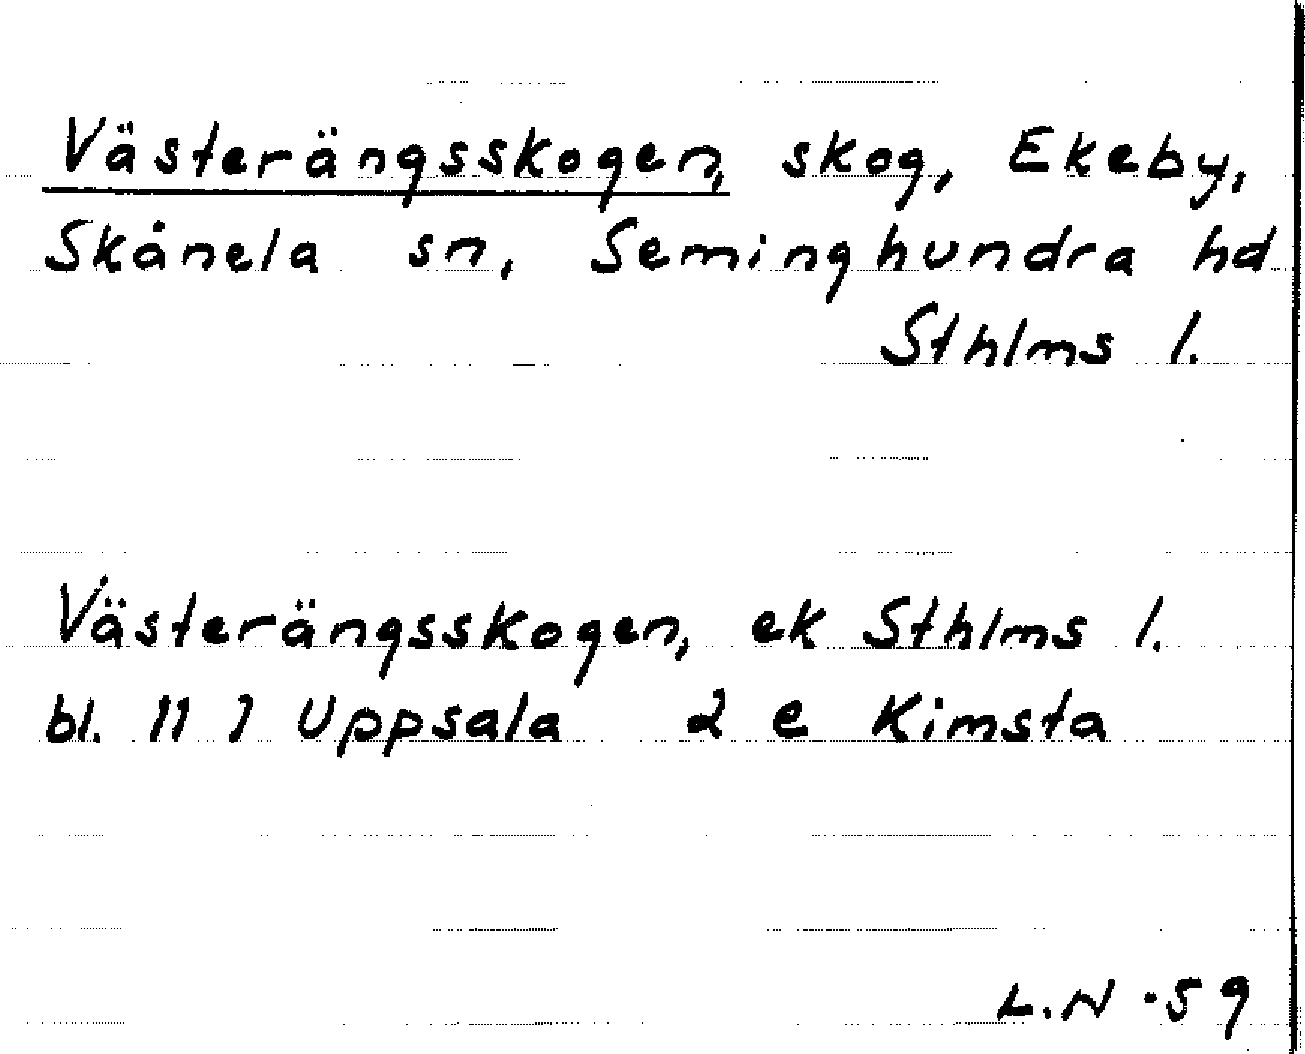 Västerängsskogen, skog, Ekeby,
Skånela sn, Seminghundra hd
Sthlms l.
Västerängsskogen, ek Sthlms l.
bl. 11 I Uppsala 2 e Kimsta
L.N -59